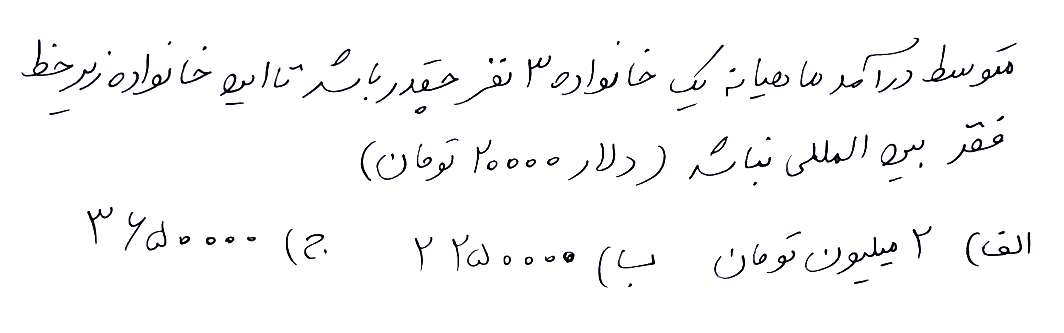 متوسط درآمد ماهیانه یک خانواده ۳ نفر چقدر باشد تا این خانواده زیر خط
فقر بین المللی نباشد (دلار ۲۰۰۰۰ تومان)
الف) ۲ میلیون تومان ب) ۲۲۵۰۰۰۰ ج) ۳۶۵۰۰۰۰